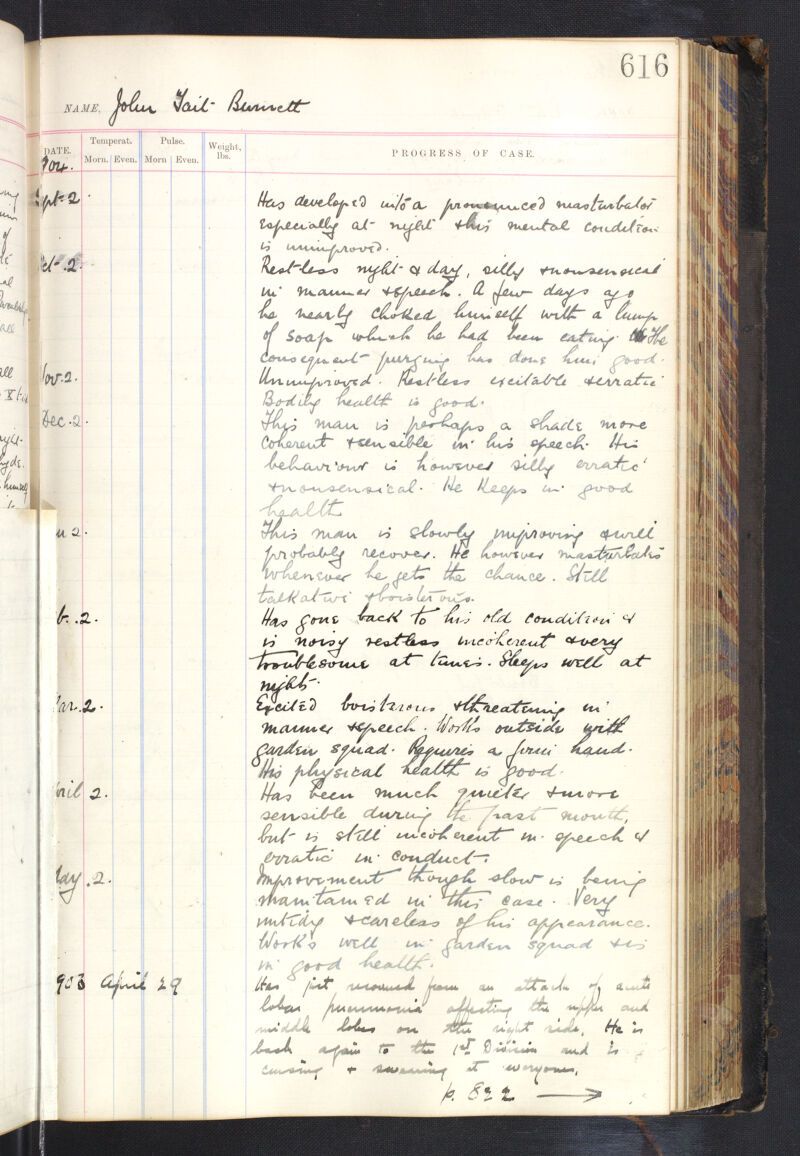 616
NAME, John Tait Burnett
DATE. Temperat. Pulse. Weight, lbs. PROGRESS OF CASE.
Morn. Even. Morn Even.
904.
Sept 2 Has developed into a pronounced masturbator
especially at night & his mental condition
is unimproved.
Oct. 2. Restless night & day, silly & nonsensical
in manner & speech. A few days ago
he nearly choked himself with a lump
of soap which he had been eating. The
consequent purging has done him good.
Nov. 2. Unimproved. Restless excitable & erratic
Bodily health is good.
Dec. 2. This man is perhaps a shade more
coherent & sensible in his speech. His
behaviour is however silly erratic
& nonsensical. He keeps in good
health
n 2. This man is slowly improving & will
probably recover. He however masturbates
whenever he gets the chance. Still
talkative & boisterous.
b. 2. Has gone back to his old condition &
is noisy restless incoherent & very
troublesome at times. Sleeps well at
night.
ar. 2. Excited boisterous & threatening in
manner & speech. Works outside with
garden squad. Requires a firm hand.
His physical health is good.
pril 2. Has been much quieter & more
sensible during the past month,
but is still incoherent in speech &
erratic in conduct.
May. 2. Improvement though slow is being
maintained in this case. Very
untidy & careless of his appearance.
Works well in garden squad & is
in good health.
903 April 29 Has just recovered from an attack of acute
lobar pneumonia affecting the upper and
middle lobes on the right side. He is
back again to the 1st Division and is
cursing & swearing at everyone.
p. 822 →